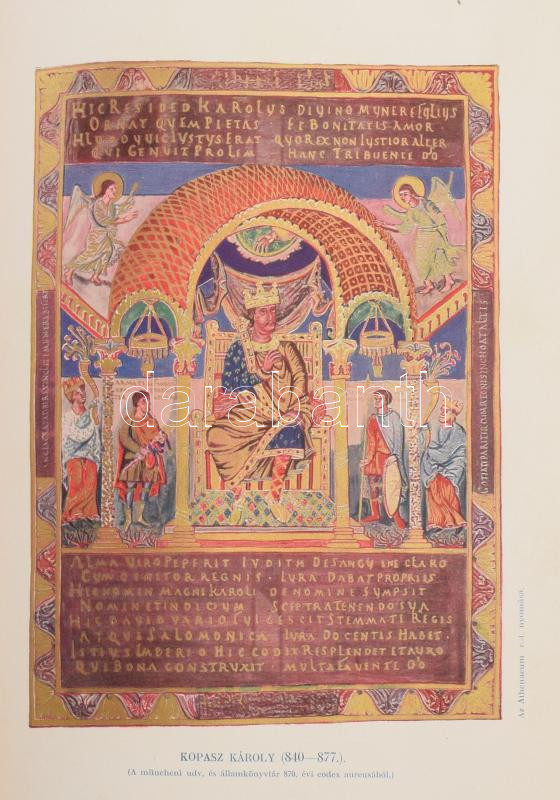 HIC RESIDED KAROLVS DIVINO MVNERE FVLTVS
ORNAT QVEM PIETAS ET BONITATIS AMOR
HLVDOVVIC IVSTVS ERAT QVO REX NON IVSTIOR ALTER
QVI GENVIT PROLEM HANC TRIBVENTE DO
ARMA
darabanth
ALMA VIRO PEPERIT IVDITH DE SANGVINE CLARO
CVM GENITOR REGNIS IVRA DABAT PROPRIIS
HIC NOMEN MAGNI KAROLI DE NOMINE SVMPSIT
NOMIN ET INDICIVM SCEPTRA TENENDO SVA
HIC DAVID VARIO FVLGESCIT STEMMATE REGIS
ATQVE SALOMONICA IVRA DOCENTIS HABET
ISTIVS IMPERIO HIC CODIX RESPLENDET ET AVRO
QVI BONA CONSTRVXIT MVLTA FAVENTE DO
Az Athenaeum r.-t. nyomása.
KOPASZ KÁROLY (840—877.).
(A müncheni udv. és államkönyvtár 870. évi codex aureusából.)